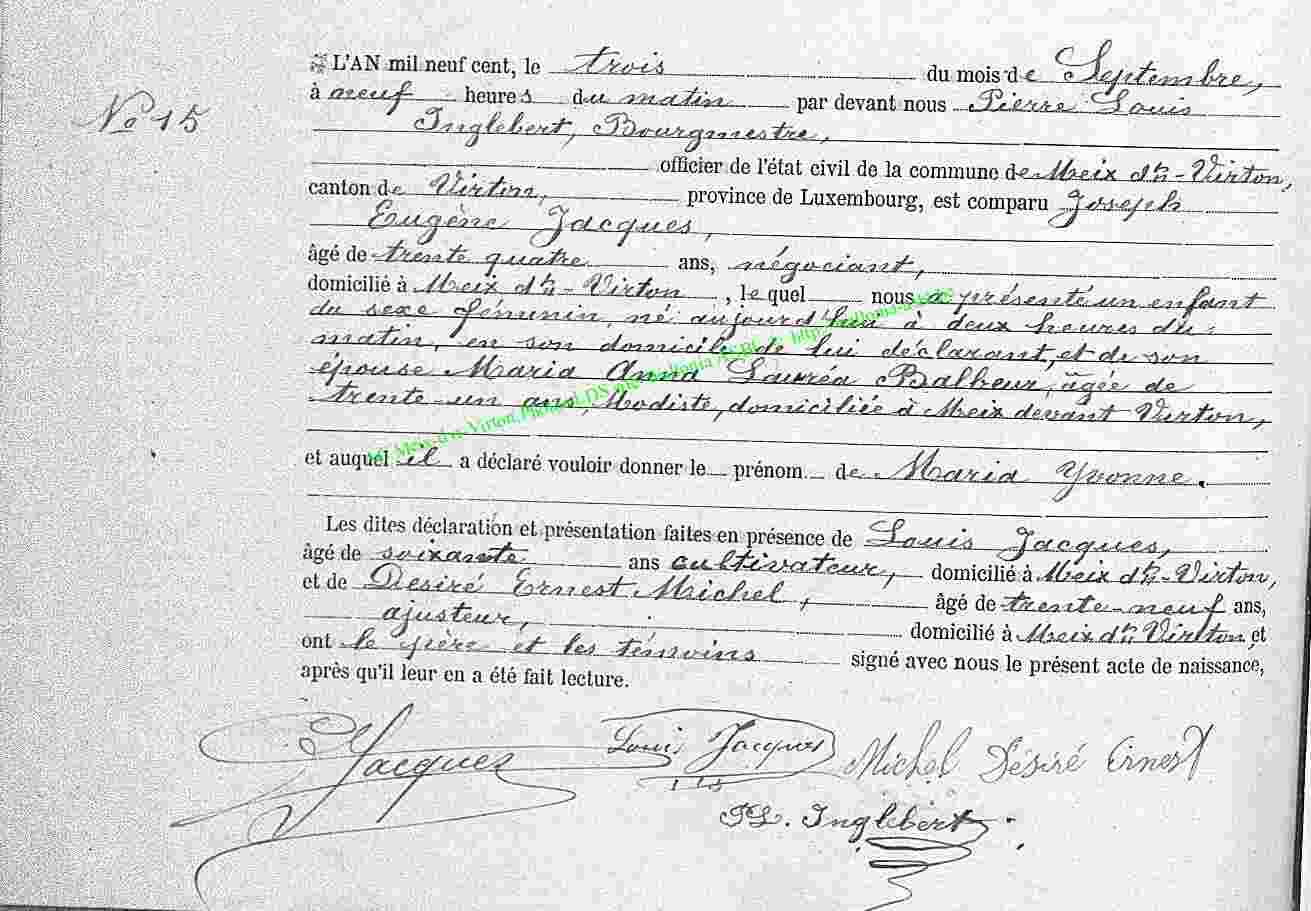 L'AN mil neuf cent, le trois du mois de Septembre,
No 15
à neuf heures du matin par devant nous Pierre Louis
Inglebert, Bourgmestre,
officier de l'état civil de la commune de Meix dt-Virton,
canton de Virton, province de Luxembourg, est comparu Joseph
Eugène Jacques,
âgé de trente quatre ans, négociant,
domicilié à Meix dt-Virton, le quel nous a présenté un enfant
du sexe féminin, né aujourd'hui à deux heures du
matin, en son domicile de lui déclarant, et de son
épouse Maria Anna Lauréa Balheur, âgée de
trente un ans, Modiste, domiciliée à Meix devant Virton,
et auquel il a déclaré vouloir donner le prénom de Maria Yvonne.
Les dites déclaration et présentation faites en présence de Louis Jacques,
âgé de soixante ans cultivateur, domicilié à Meix dt-Virton,
et de Desiré Ernest Michel, âgé de trente-neuf ans,
ajusteur, domicilié à Meix dt Virton et
ont le père et les témoins signé avec nous le présent acte de naissance,
après qu'il leur en a été fait lecture.
Jacques Louis Jacques Michel Désiré Ernest
PL. Inglebert